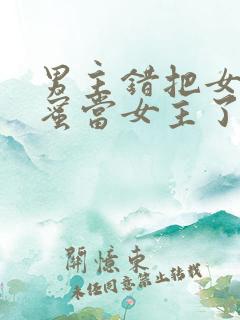 男主錯把女
蜜當女主了
開憶東
未经同意禁止转载